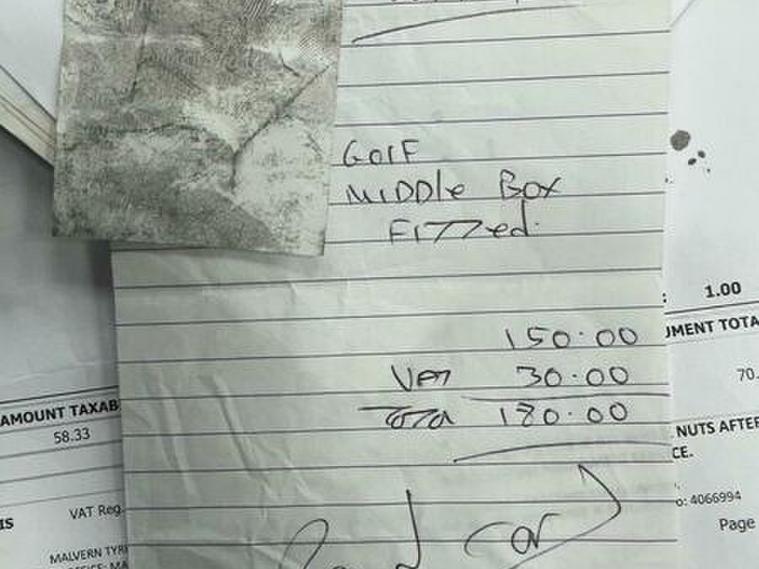 GOLF
MIDDle Box
FITTed.
150.00
VAT 30.00
Total 180.00
car
1.00
UMENT TOTA
70.
NUTS AFTER
CE.
o: 4066994
Page
AMOUNT TAXAB
58.33
IS
VAT Reg.
MALVERN TYR